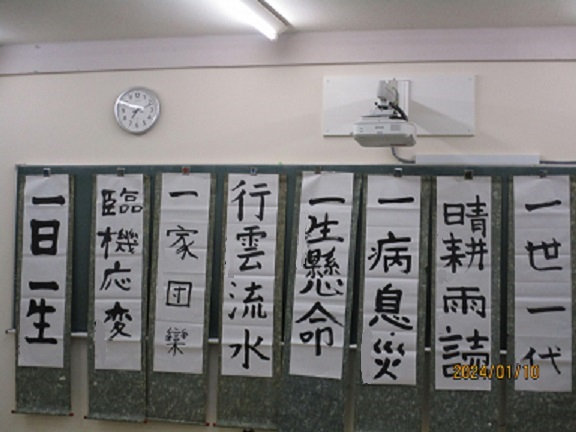 一世一代
晴耕雨読
一病息災
一生懸命
行雲流水
一家団欒
臨機応変
一日一生
2024/01/10